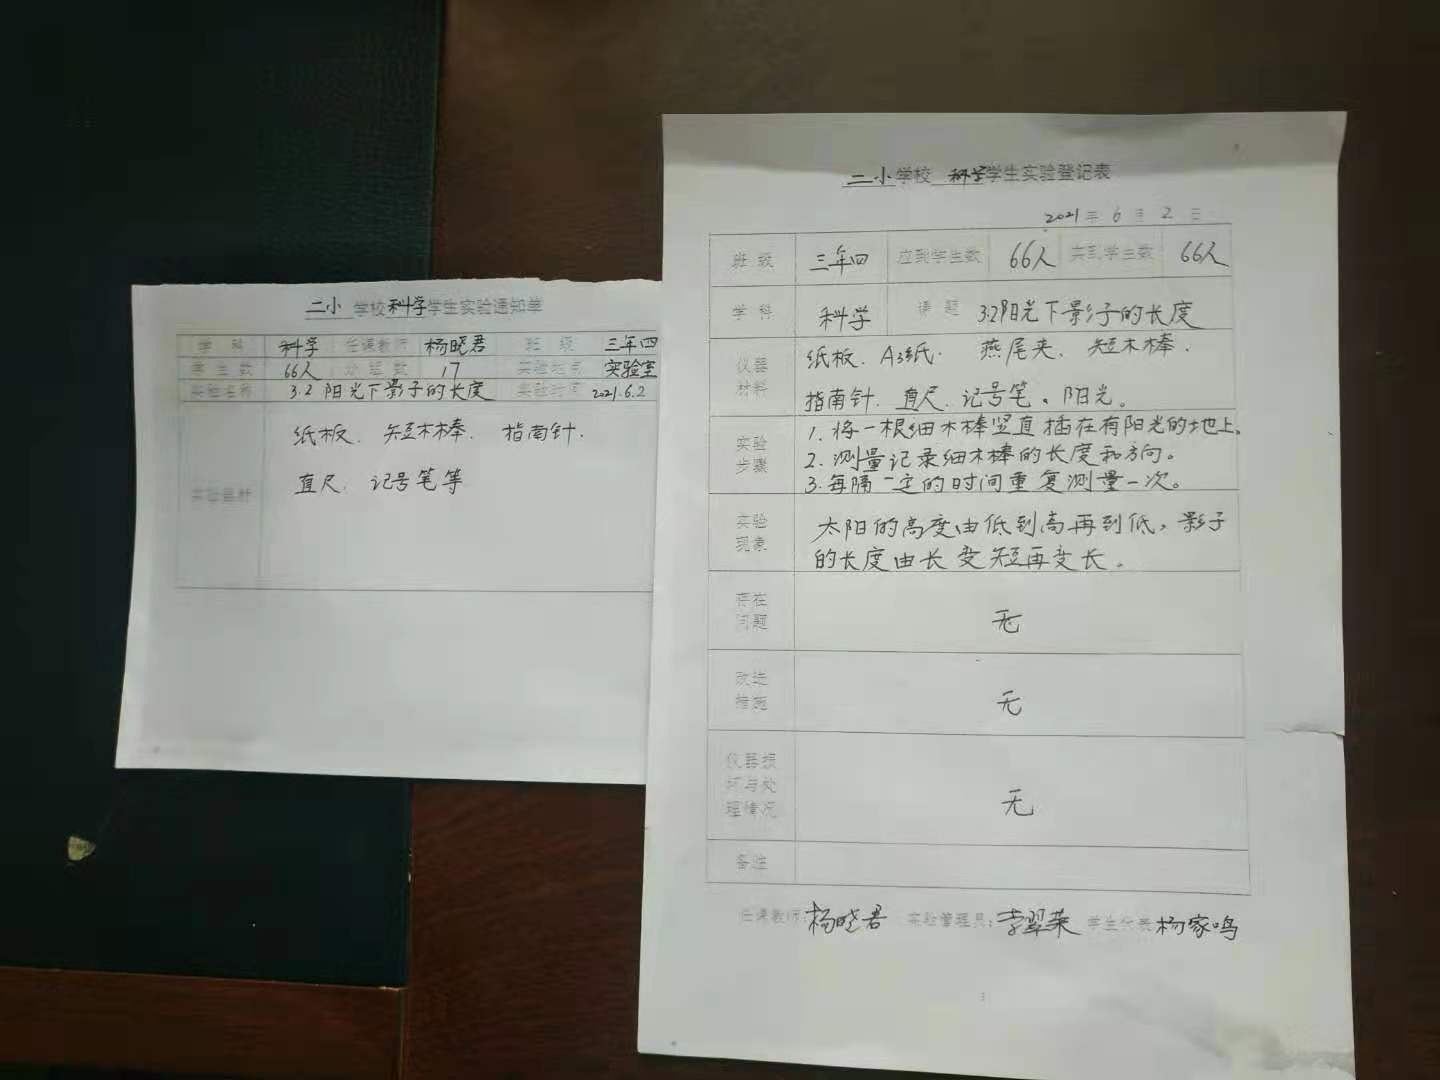 二小 学校 科学 学生实验通知单
学 科 科学 任课教师 杨晓君 班 级 三年四
学 生 数 66人 分 组 数 17 实验地点 实验室
实验名称 3.2 阳光下影子的长度 实验时间 2021.6.2
纸板、短木棒、指南针、
实验器材 直尺、记号笔等
二小 学校 科学 学生实验登记表
2021 年 6 月 2 日
班 级 三年四 应到学生数 66人 实到学生数 66人
学 科 科学 课 题 3.2阳光下影子的长度
仪器材料 纸板、A3纸、燕尾夹、短木棒、
指南针、直尺、记号笔、阳光。
实验步骤 1.将一根细木棒竖直插在有阳光的地上。
2.测量记录细木棒的长度和方向。
3.每隔一定的时间重复测量一次。
实验现象 太阳的高度由低到高再到低,影子
的长度由长变短再变长。
存在问题 无
改进措施 无
仪器损坏与处理情况 无
备注
任课教师:杨晓君 实验管理员: 学生代表 杨家鸣